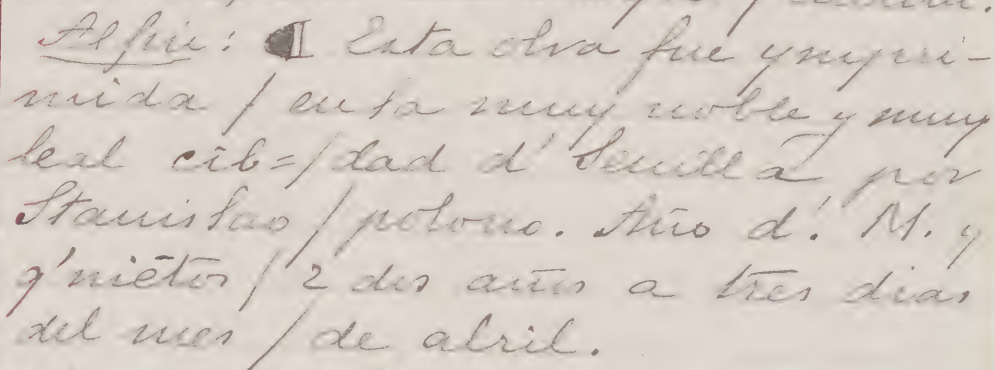 Al fin: ¶ Esta obra fue ympri-
mida / en la muy noble y muy
leal cib=/dad d' Seuilla por
Stanislao / polono. Año d'. M. y
q'niētos / 2 dos años a tres dias
del mes / de abril.